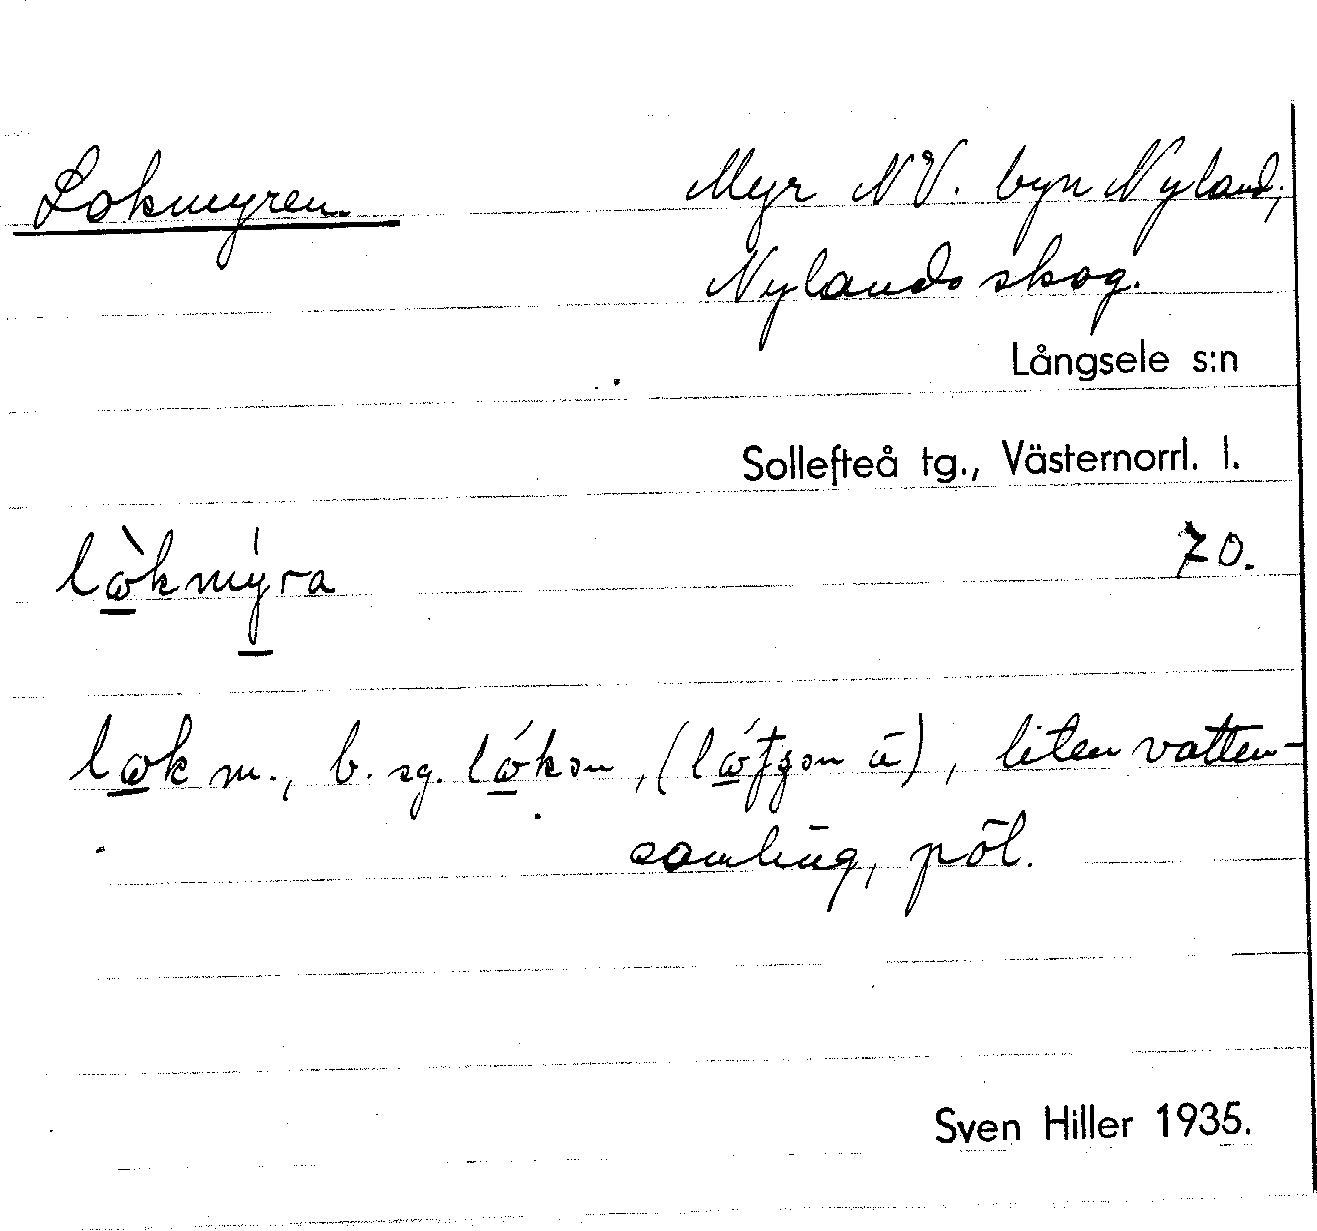 Lokmyren.
Myr NV. byn Nyland;
Nylands skog.
Långsele s:n
Sollefteå tg., Västernorrl. l.
lὼkmýra
70.
lωk m., b. sg. lώkən, (lώtʃən ä), liten vatten-
samling, pöl.
Sven Hiller 1935.